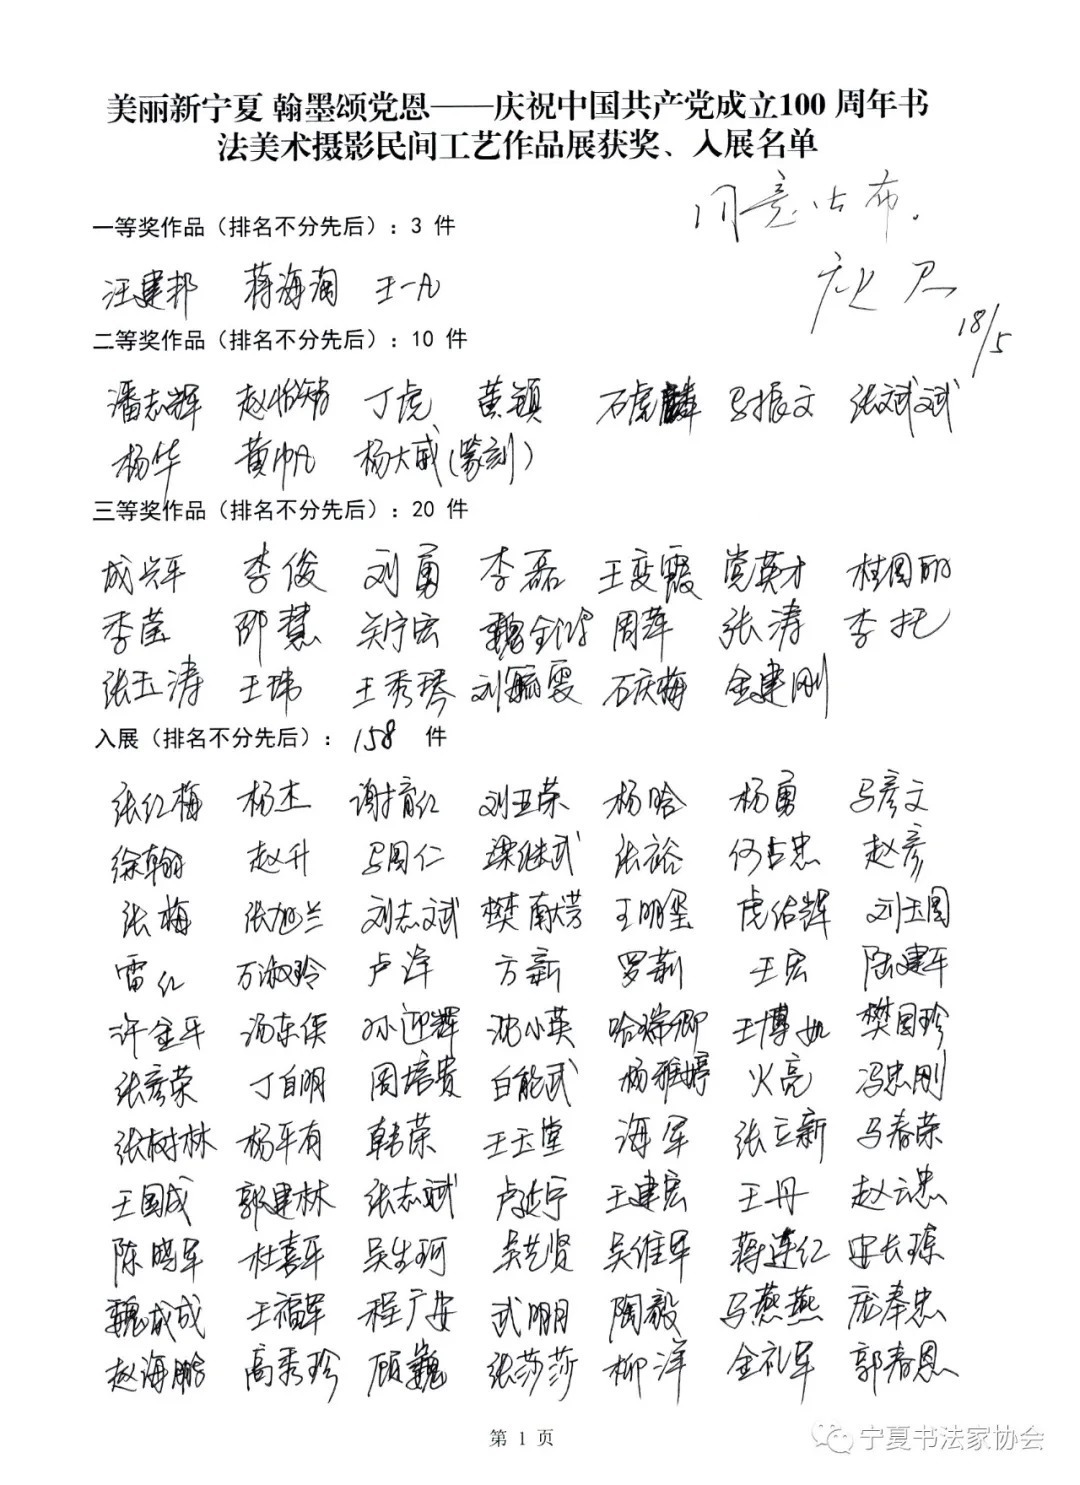 美丽新宁夏 翰墨颂党恩——庆祝中国共产党成立100 周年书
法美术摄影民间工艺作品展获奖、入展名单
同意公布.
一等奖作品（排名不分先后）：3 件
汪建邦 蒋海淘 王一凡
18/5
二等奖作品（排名不分先后）：10 件
潘志辉 丁虎 黄镇 石虎麟 马振文 张斌斌
杨华 黄帆 杨大威(篆刻)
三等奖作品（排名不分先后）：20 件
成兴平 李俊 刘勇 李磊 王变霞 党英才 桂国丽
季莹 邵慧 关宁宏 周萍 张涛 李托
张玉涛 王玮 王秀琴 刘毓雯 石庆梅 金建刚
入展（排名不分先后）： 158 件
张红梅 杨杰 谢育红 刘亚荣 杨晗 杨勇 马彦文
徐翰翔 赵升 马国仁 梁继武 张裕 何占忠 赵彦
张梅 张旭兰 刘志斌 樊献芳 王鹏玺 虎佑辉 刘玉国
雷红 万淑玲 卢洋 方新 罗莉 王宏 陆建平
许金平 汤东侯 孙迎辉 沈小英 哈瑞卿 王博如 樊国珍
张彦荣 丁自明 周培贵 白能武 杨雅婷 火亮 冯忠刚
张树林 杨平有 韩荣 王玉堂 海军 张立新 马春荣
王国成 郭建林 张志斌 卢延宁 王建宏 王丹 赵云忠
陈晓军 杜喜平 吴生珂 吴艺贤 吴维军 蒋连红 安长琼
魏成成 王福军 程广安 武明月 陶毅 马燕燕 庞奉忠
赵海鹏 高秀珍 顾巍 张莎莎 柳洋 金礼军 郭春恩
第 1 页
宁夏书法家协会